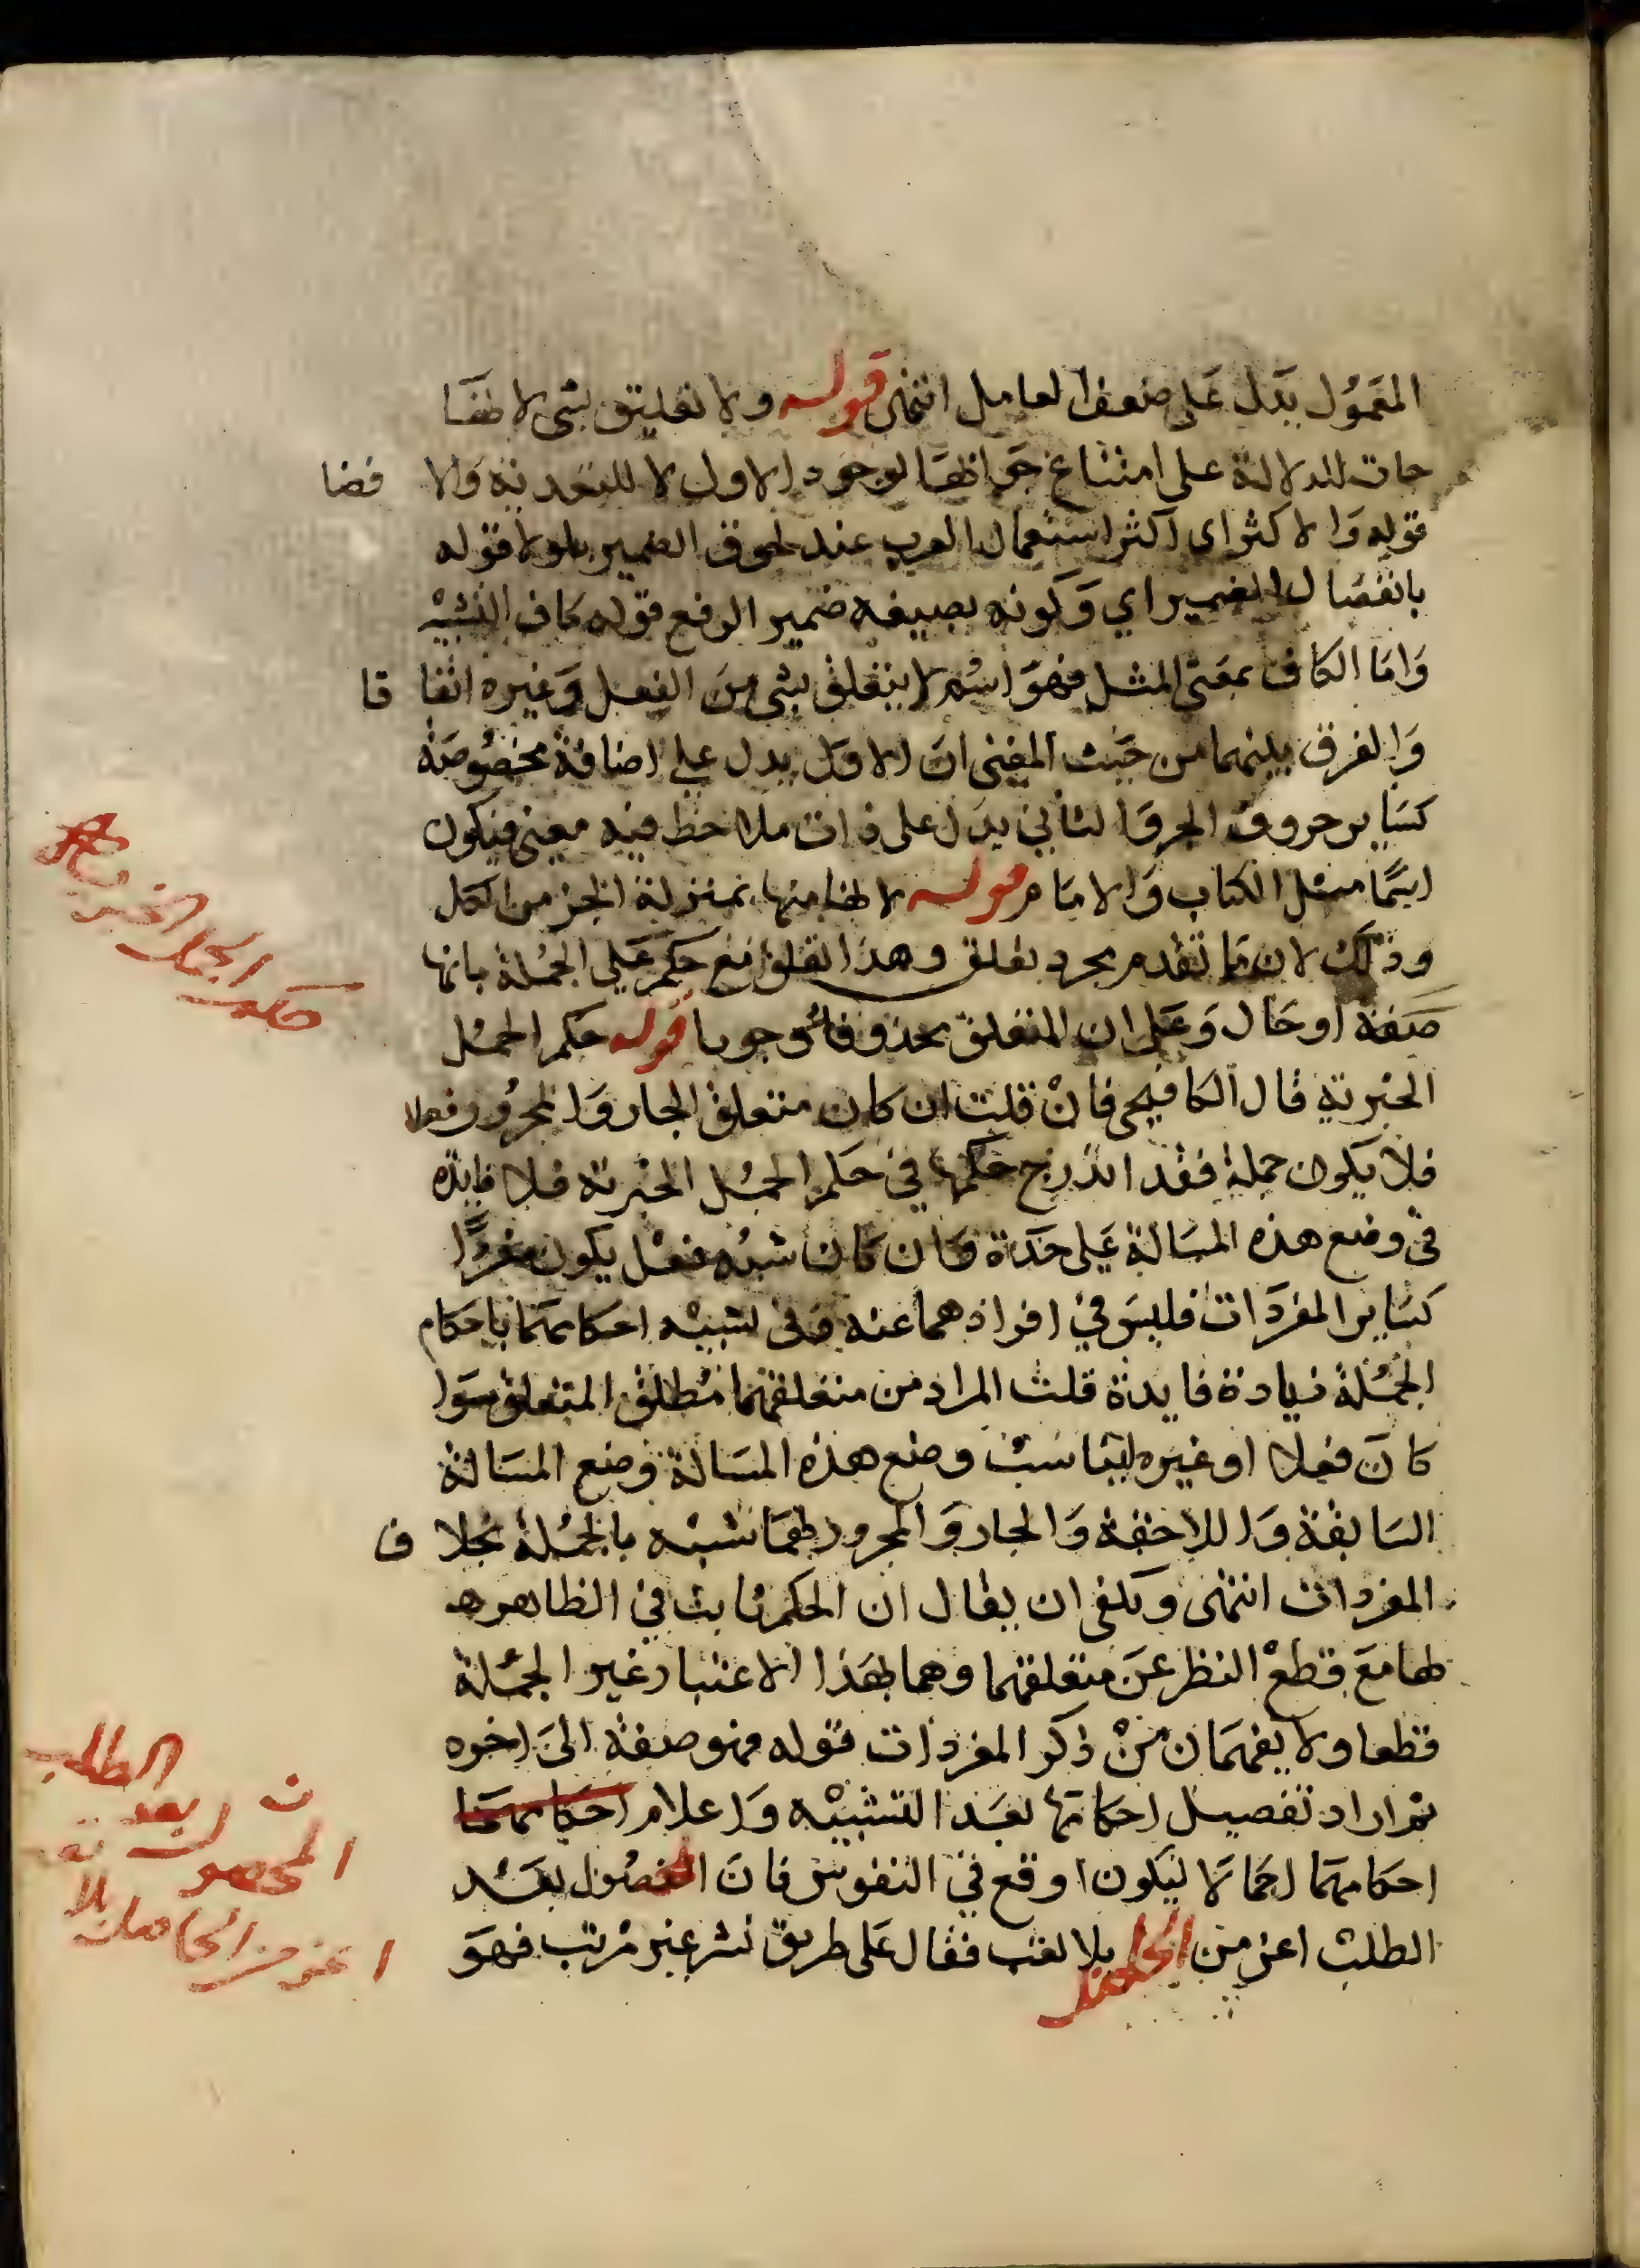 المعمول يدل على ضعف العامل انتهى قوله ولا تعليق بشى لانها
جات للدلالة على امتناع جوابها لوجود الاول لا للتعدية والافضا
قوله والاكثر اى اكثر استعمال العرب عند لحوق الضمير بلولا قوله
بانفصال الضمير اي وكونه بصيغه ضمير الرفع قوله كاف التشبيه
واما الكاف بمعنى المثل فهو اسم لا يتعلق بشى من الفعل وغيره اتفاقا
والفرق بينهما من حيث المعنى ان الاول يدل على اضافة مخصوصة
كساير حروف الجر والثاني يدل على ذات ملاحظ فيه معنى فيكون
اسما مثل الكتاب والامام قوله لانها منها بمنزلة الجز من الكل
وذلك لان ما تقدم مجرد تعلق وهذا تعلق مع حكم على الجملة بانها
صفة او حال وعلى ان المتعلق محذوف وجوبا قوله حكم الجمل
الخبرية قال الكافيجى فان قلت ان كان متعلق الجار والمجرور فعلا
فلا يكون جملة فقد اندرج حكمها في حكم الجمل الخبرية فلا فايده
في وضع هذه المسالة على حدة وان كان شبه فعل يكون مفردا
كساير المفردات فليس في افرادهما عنه وفى تشبيه احكامهما باحكام
الجملة زيادة فايدة قلت المراد من متعلقهما مطلق المتعلق سوا
كان فعلا او غيره ليناسب وضع هذه المسالة وضع المسالة
السابقة واللاحقة والجار والمجرور لهما شبه بالجملة بخلاف
المفردات انتهى ويكفى ان يقال ان الحكم ثابت في الظاهر
لهما مع قطع النظر عن متعلقهما وهما بهذا الاعتبار غير الجملة
قطعا ولا يفهمان من ذكر المفردات قوله فهو صفة الى اخره
ثم اراد تفصيل احكامها بعد التشبيه واعلام احكامهما
احكامهما اجمالا ليكون اوقع في النفوس فان المحصول بعد
الطلب اعز من الحاصل بلا تعب فقال على طريق نشر غير مرتب فهو
حكم الجمل الخبرية
ن المحصول بعد الطلب
اعز من الحاصل بلا تعب